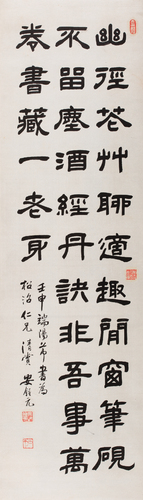 幽徑芲艸聊適趣閒窗筆硯
不畱塵酒經丹訣非吾事萬
卷書藏一老身
壬申端陽節書為
松治仁兄清賞